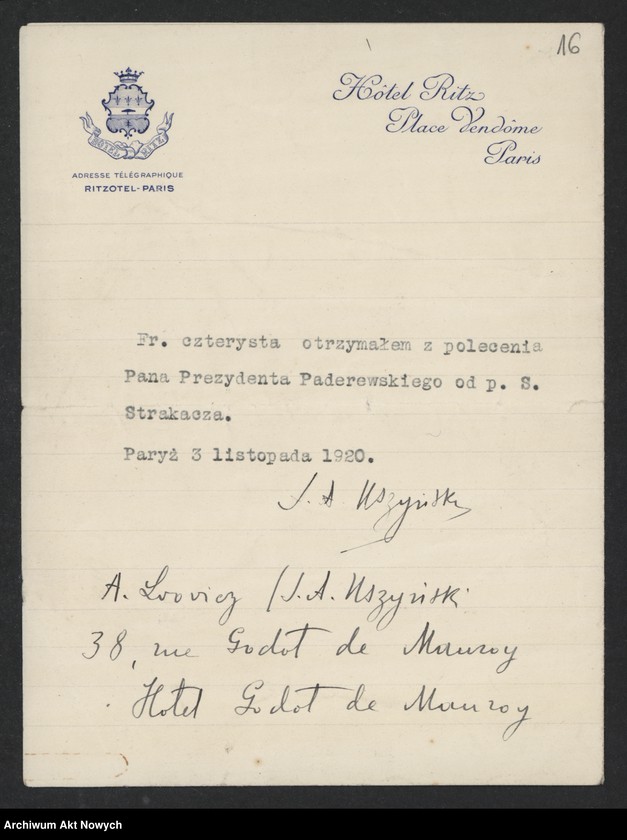 16
Hôtel Ritz
Place Vendôme
Paris
HOTEL RITZ
ADRESSE TÉLÉGRAPHIQUE
RITZOTEL-PARIS
Fr. czterysta otrzymałem z polecenia
Pana Prezydenta Paderewskiego od p. S.
Strakacza.
Paryż 3 listopada 1920.
J. A Uszyński
A. Lvovicz /J. A. Uszyński
38, rue Godot de Mauroy
Hotel Godot de Mauroy
Archiwum Akt Nowych